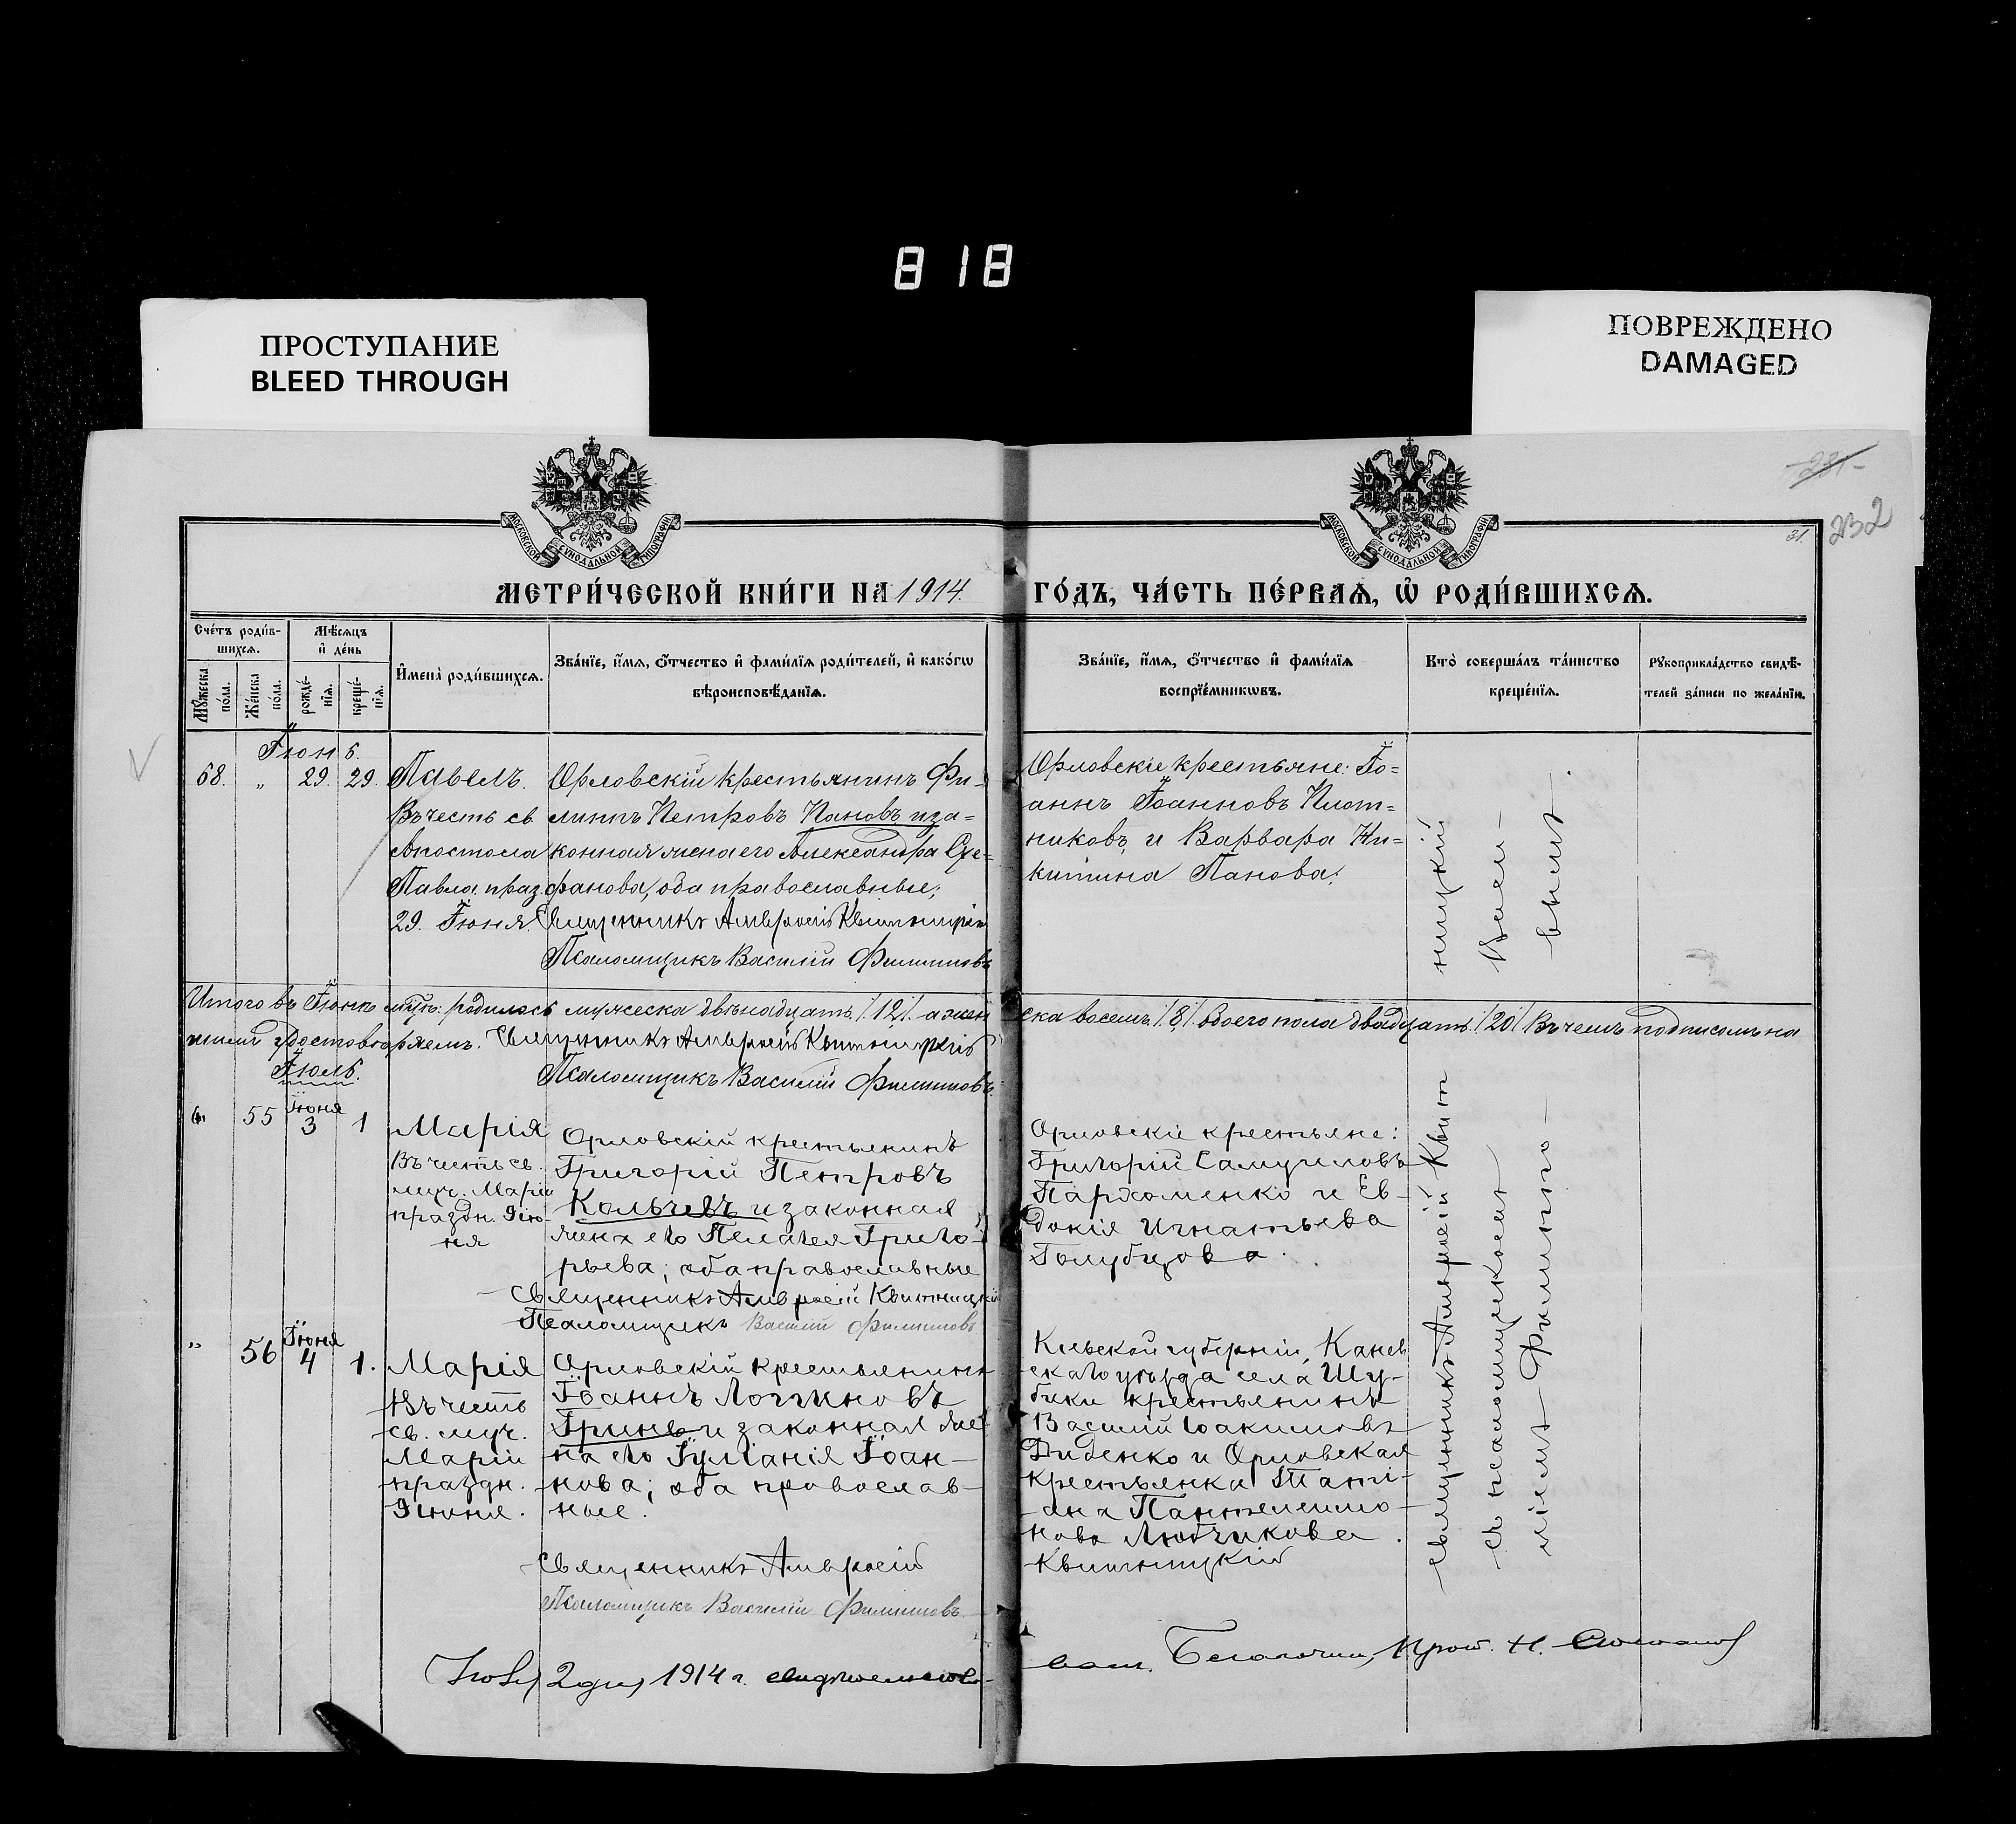 818
ПРОСТУПАНИЕ
BLEED THROUGH
ПОВРЕЖДЕНО
DAMAGED
-231-
232
31.
МОСКОВСКОЙ СѴНОДАЛЬНОЙ ТИПОГРАФІИ
МОСКОВСКОЙ СѴНОДАЛЬНОЙ ТИПОГРАФІИ
МЕТРИ́ЧЕСКОЙ КНИ́ГИ НА 1914 ГО́ДЪ, ЧА́СТЬ ПЕ́РВАѦ, Ѡ҆ РОДИ́ВШИХСѦ.
Сче́тъ роди́в-
шихсѧ.
Мѣ́сѧцъ
и҆ де́нь
Мꙋ́жеска
по́ла.
Же́нска
по́ла.
рожде́-
нїѧ.
креще́-
нїѧ.
И҆мена̀ роди́вшихсѧ.
Зва́нїе, и҆́мѧ, ѻ҆́тчество и҆ фами́лїѧ роди́телей, и҆ како́гѡ
вѣроисповѣ́данїѧ.
Зва́нїе, и҆́мѧ, ѻ҆́тчество и҆ фами́лїѧ
воспрїе́мникѡвъ.
Кто̀ соверша́лъ та́инство
креще́нїѧ.
Рꙋкоприкла́дство свидѣ́-
телей за́писи по жела́нїю.
Іюнь.
68. " 29. 29. Павелъ.
Въ честь св.
Апостола
Павла, праз.
29. Іюня.
Орловскій крестьянинъ Фи-
липпъ Петровъ Пановъ и за-
конная жена его Александра Сте-
фанова, оба православные;
Священникъ Амвросій Квитницкій
Псаломщикъ Василій Филипповъ
Орловскіе крестьяне: Іо=
аннъ Іоанновъ Плот=
никовъ, и Варвара Ни=
китина Панова.
Итого въ Іюнѣ мцѣ: родилось мужеска двѣнадцать /12/. а женска восемь /8/ обоего пола двадцать /20/ Въ чемъ подписомъ на
шимъ удостовѣряемъ. Священникъ Амвросій Квитницкій
Псаломщикъ Василій Филипповъ.
Іюль.
55 Іюня
3 1 Марія
Въ честь св.
муч. Маріи
праздн. 9 Ію-
ня
Орловскій крестьянинъ
Григорій Петровъ
Кольчевъ и законная
жена его Пелагея Григо-
рьева; оба православные
Священникъ Амвросій Квитницкій
Псаломщикъ Василій Филипповъ
Орловскіе крестьяне:
Григорій Самуиловъ
Пархоменко и Ев-
докія Игнатьева
Голубцова.
" 56 Іюня
4 1. Марія
Въ честь
св. муч.
Маріи
праздн.
9 Іюня.
Орловскій крестьянинъ
Іоаннъ Логгиновъ
Гринь и законная же
на его Іуліанія Іоан-
нова; оба православ-
ные.
Священникъ Амвросій
Псаломщикъ Василій Филипповъ
Кіевской губерніи, Канев
скаго уѣзда села Шу-
бики крестьянинъ
Василій Іоакимовъ
Диденко и Орловская
крестьянка Таті-
ана Пантелеимо-
нова Любчикова.
Квитницкій
Священникъ Амвросій Квитницкій
съ псаломщикомъ Василі-
емъ Филипповымъ.
Іюля 2 дня 1914 г. свидѣтельство-
валъ. Благочин., Прот. Н.